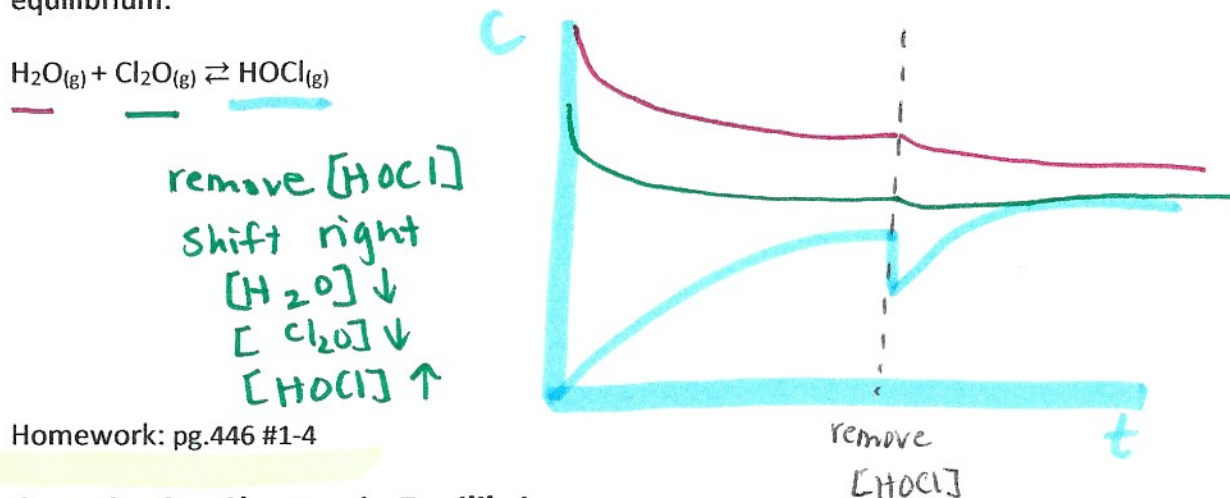 equilibrium.
H₂O(g) + Cl₂O(g) ⇄ HOCl(g)
remove [HOCl]
shift right
[H₂O] ↓
[Cl₂O] ↓
[HOCl] ↑
Homework: pg.446 #1-4
C
t
remove
[HOCl]